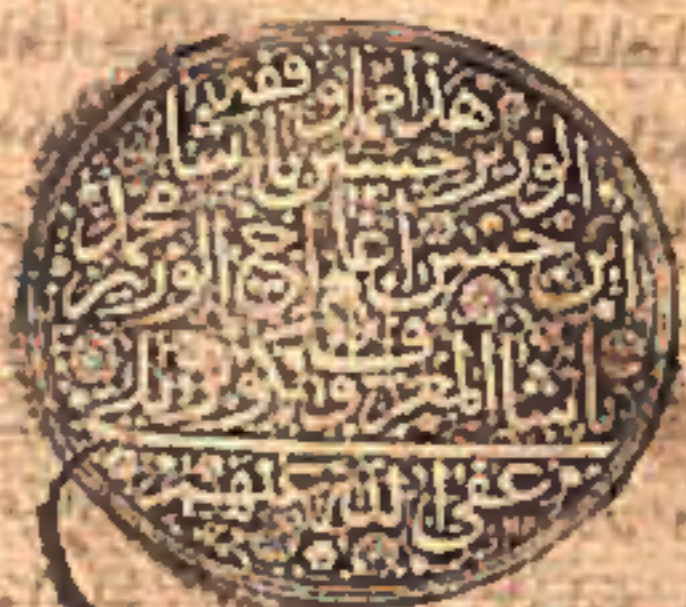 هذا ما وقفه
الوزير حسين پاشا
ابن حسن اغا الوزير محمد
پاشا المعروف
عفى الله عنهم